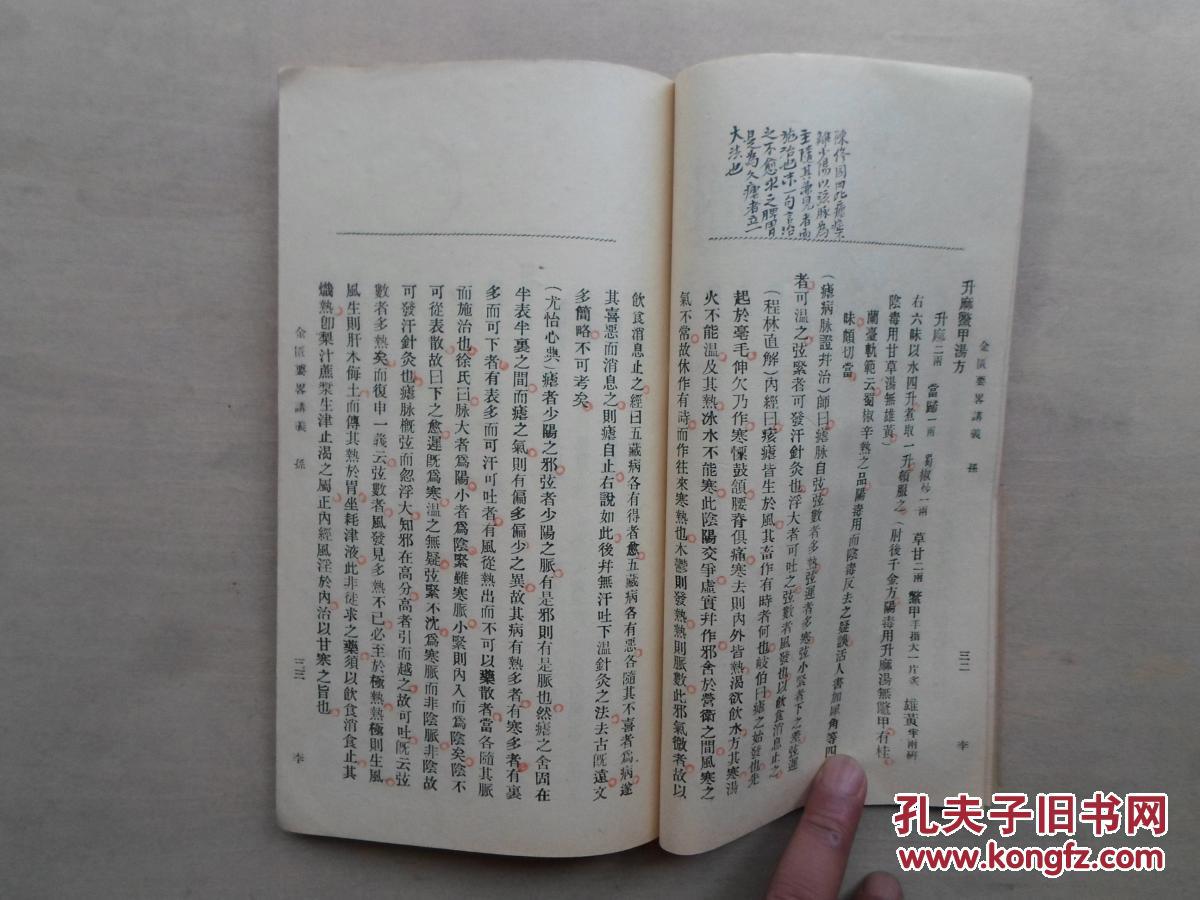 金匱要畧講義 孫 三二 李
升麻鼈甲湯方
升麻二兩 當歸一兩 蜀椒炒一兩 草甘二兩 鼈甲手搯大一片炙 雄黃半兩研
右六味以水四升煮取一升頓服之（肘後千金方陽毒用升麻湯無鼈甲有桂
陰毒用甘草湯無雄黃）
蘭臺軌範云蜀椒辛熱之品陽毒用而陰毒反去之疑誤活人書加犀角等四
味頗切當
（瘧病脉證幷治）師曰瘧脉自弦弦數者多熱弦遲者多寒弦小緊者下之差弦遲
者可温之弦緊者可發汗針灸也浮大者可吐之弦數者風發也以飲食消息止之
（程林直解）內經曰痎瘧皆生於風其畜作有時者何也岐伯曰瘧之始發也先
起於毫毛伸欠乃作寒慄鼓頷腰脊俱痛寒去則內外皆熱渴欲飲水方其寒湯
火不能温及其熱冰水不能寒此陰陽交爭虛實幷作邪舍於營衛之間風寒之
氣不常故休作有時而作往來寒熱也木鬱則發熱熱則脈數此邪氣微者故以
陳修園曰此言瘧病
雖少陽以弦脉為
主隨其兼見者而
施治也末一句言治
之不愈求之脾胃
是為久瘧者立一
大法也
飲食消息止之經曰五藏病各有得者愈五藏病各有惡各隨其不喜者爲病遂
其喜惡而消息之則瘧自止右說如此後幷無汗吐下温針灸之法去古旣遠文
多簡略不可考矣
（尤怡心典）瘧者少陽之邪弦者少陽之脈有是邪則有是脈也然瘧之舍固在
半表半裏之間而瘧之氣則有偏多偏少之異故其病有熱多者有寒多者有裏
多而可下者有表多而可汗可吐者有風從熱出而不可以藥散者當各隨其脈
而施治也徐氏曰脉大者爲陽小者爲陰緊雖寒脈小緊則內入而爲陰矣陰不
可從表散故曰下之愈遲旣爲寒温之無疑弦緊不沈爲寒脈而非陰脈非陰故
可發汗針灸也瘧脉槪弦而忽浮大知邪在高分高者引而越之故可吐旣云弦
數者多熱矣而復申一義云弦數者風發見多熱不已必至於極熱熱極則生風
風生則肝木侮土而傳其熱於胃坐耗津液此非徒求之藥須以飲食消食止其
熾熱卽梨汁蔗漿生津止渴之屬正內經風淫於內治以甘寒之旨也
金匱要畧講義 孫 三三 李
孔夫子旧书网
www.kongfz.com